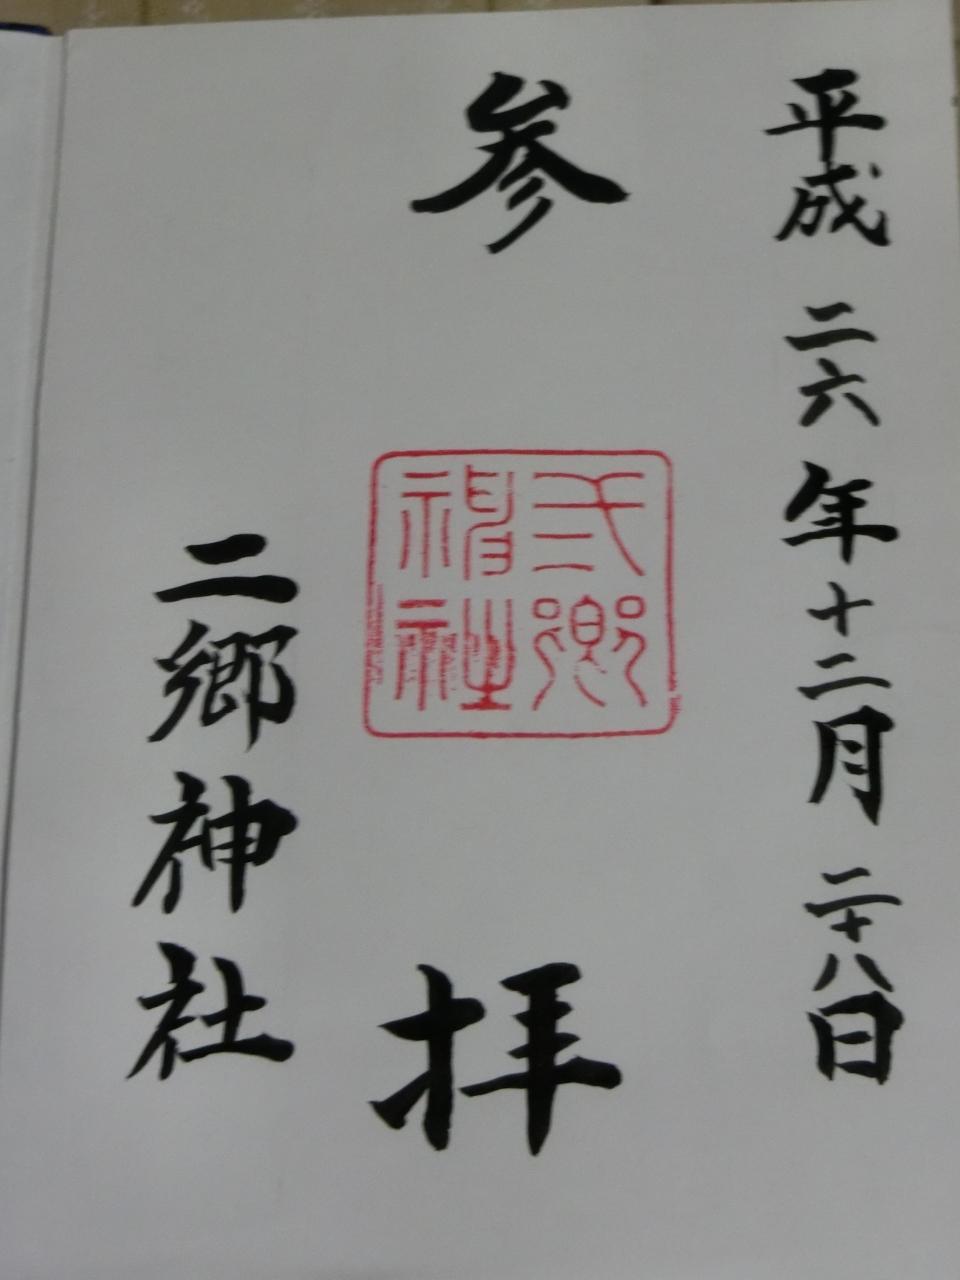 平成二六年十二月二十八日
参拝
弍郷神社
二郷神社